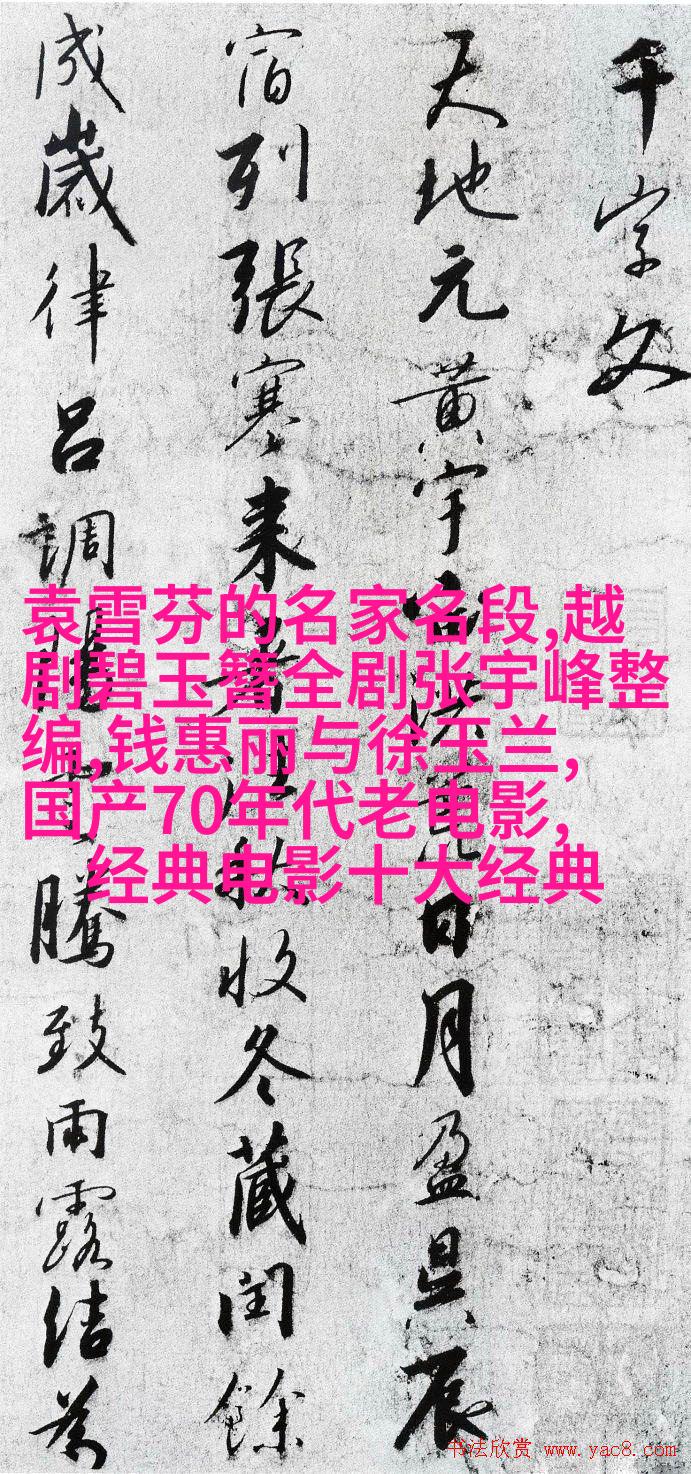 千字文
天地元黄宇宙洪荒日月盈昃辰
宿列張寒来暑往秋收冬藏閏餘
成歲律吕調陽雲騰致雨露结為
袁雪芬的名家名段,越
剧碧玉簪全剧张宇峰整
编,钱惠丽与徐玉兰,
国产70年代老电影,
经典电影十大经典
书法欣赏 www.yac8.com